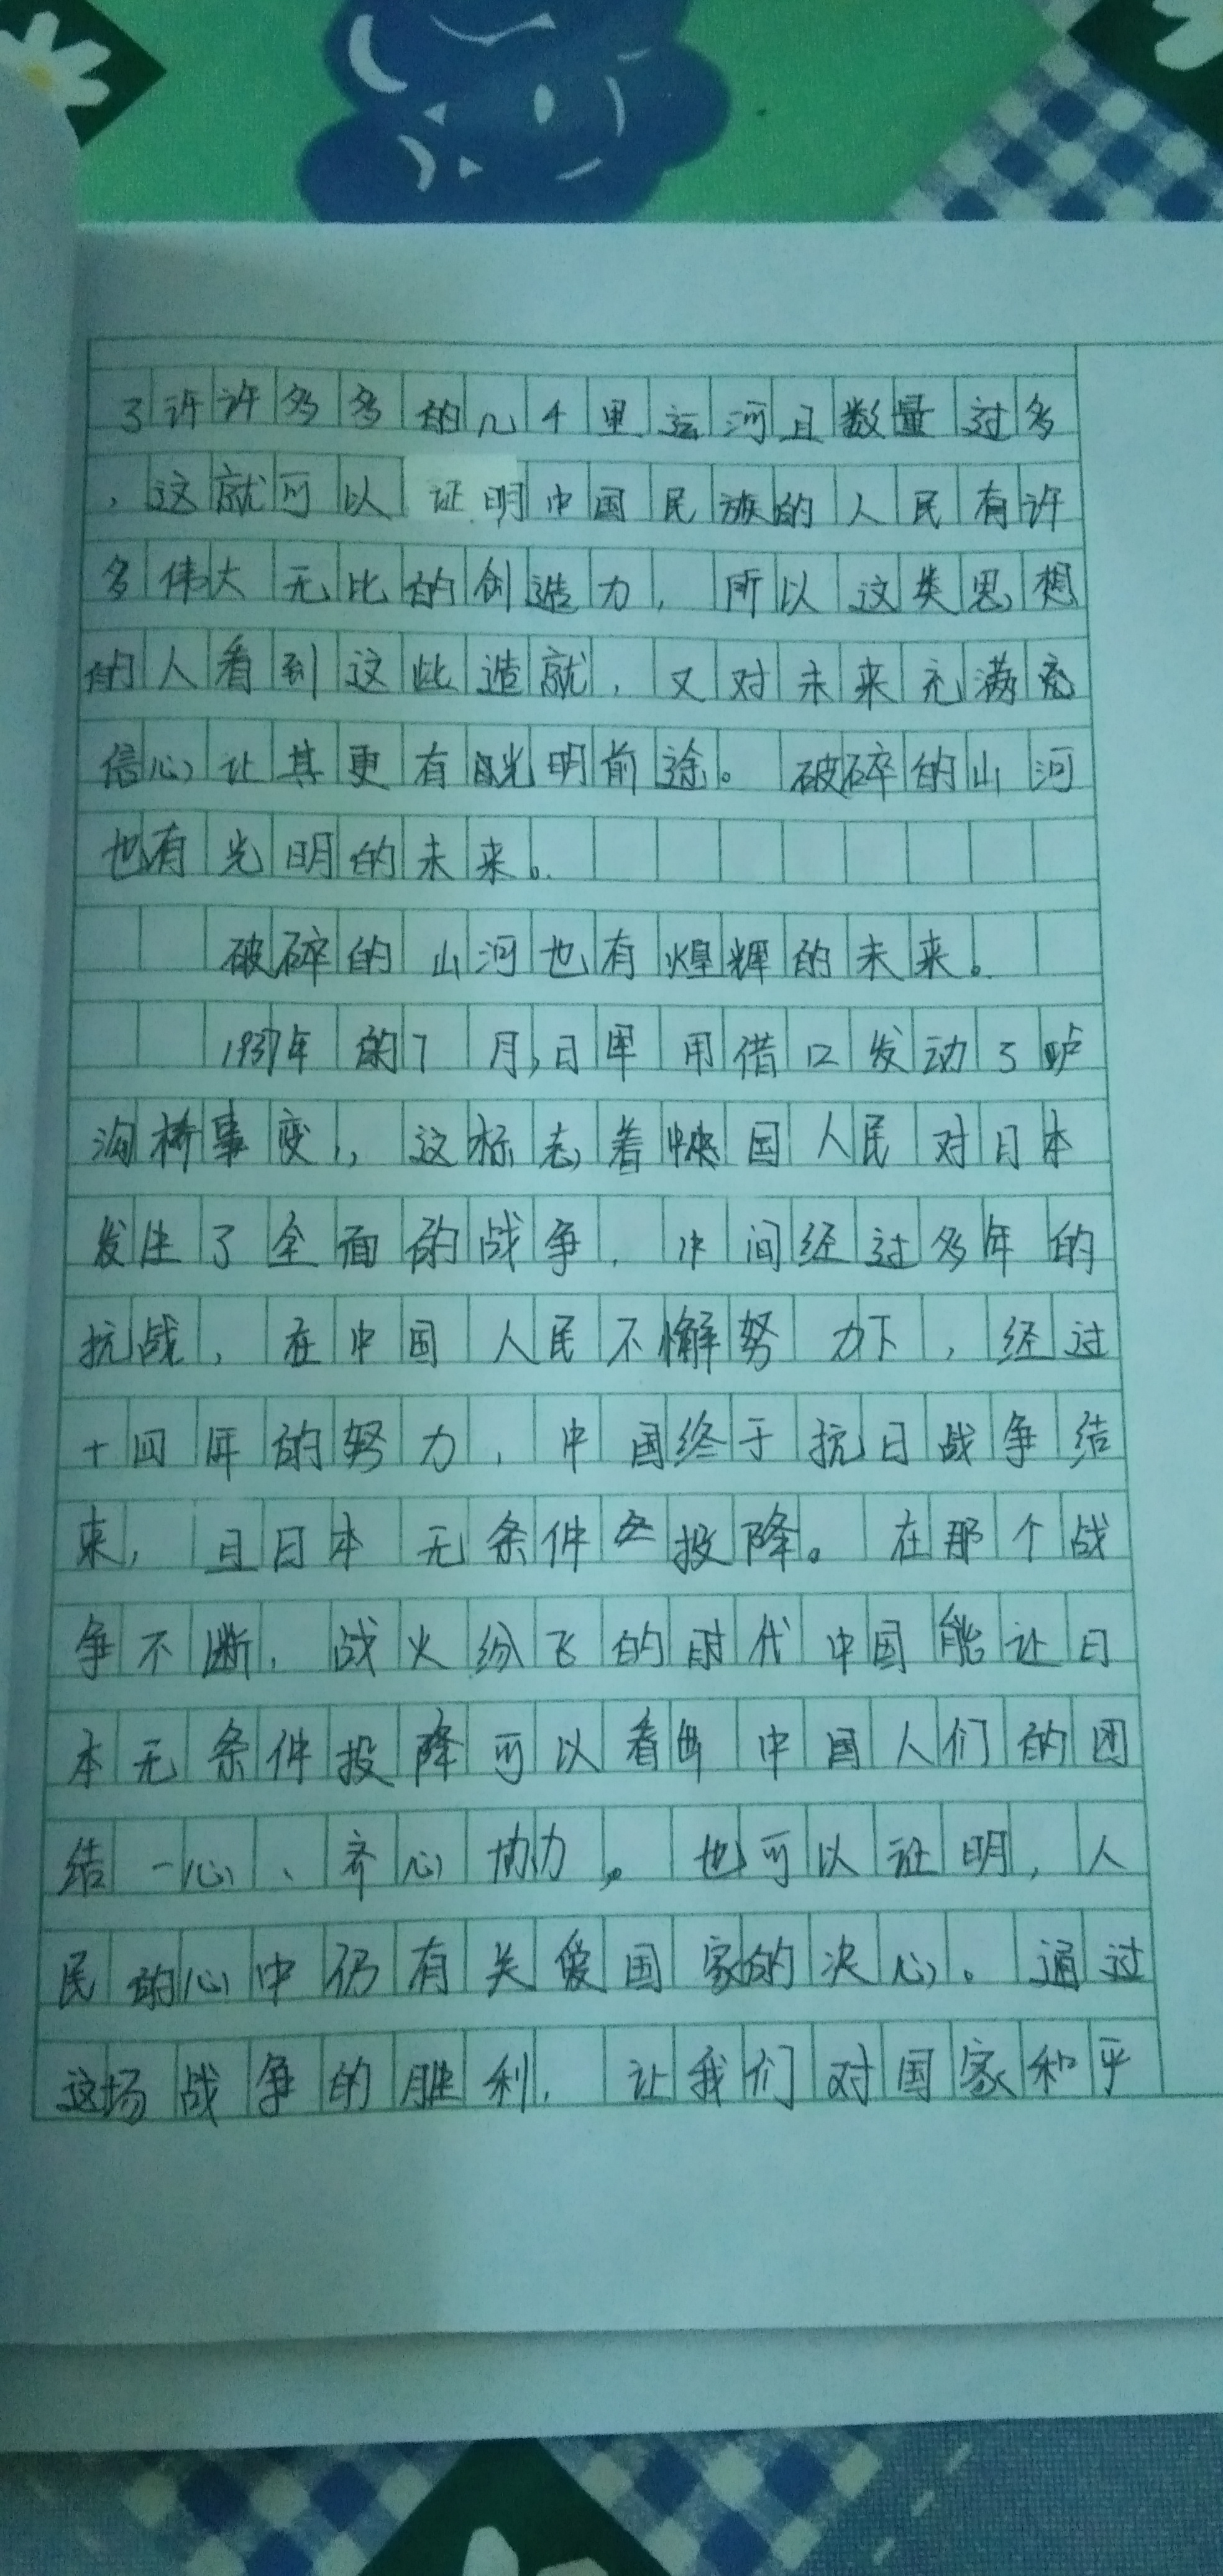 了许许多多的几千里运河且数量过多
，这就可以证明中国民族的人民有许
多伟大无比的创造力，所以这类思想
的人看到这些造就，又对未来充满充
信心让其更有光明前途。破碎的山河
也有光明的未来。
破碎的山河也有煌辉的未来。
1937年的7月，日军用借口发动了
沟桥事变，这标志着国人民对日本
发生了全面的战争，中间经过多年的
抗战，在中国人民不懈努力下，经过
十四年的努力，中国终于抗日战争结
束，且日本无条件投降。在那个战
争不断，战火纷飞的时代中国能让日
本无条件投降可以看出中国人们的团
结一心、齐心协力。也可以证明，人
民的心中仍有关爱国家的决心。通过
这场战争的胜利，让我们对国家和平